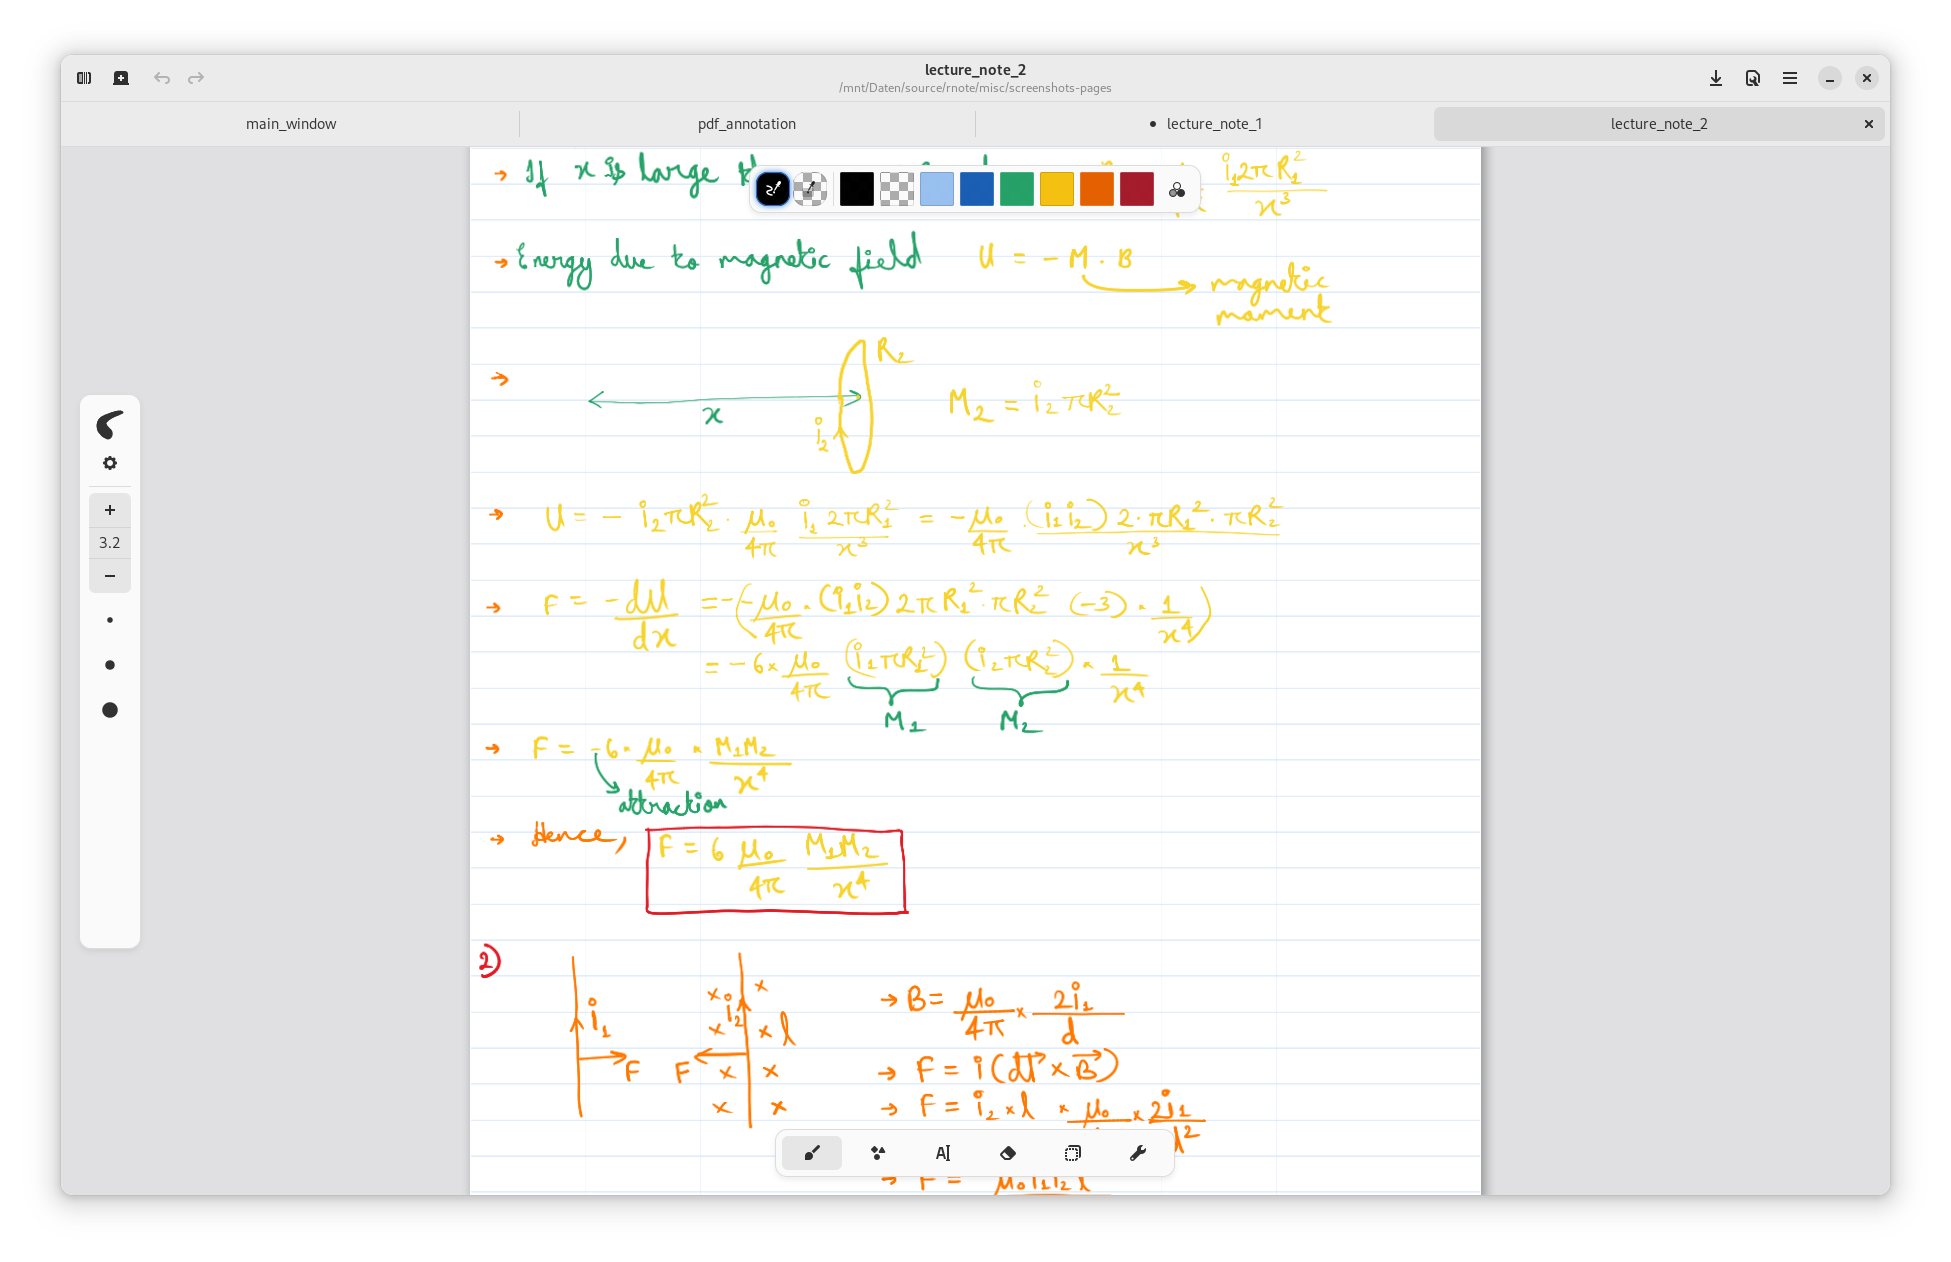 lecture_note_2
/mnt/Daten/source/rnote/misc/screenshots-pages
main_window
pdf_annotation
• lecture_note_1
lecture_note_2
→ If x is large
i₁2πR₁²
x³
→ Energy due to magnetic field U = - M . B
magnetic
moment
→ R₂
x
i₂
M₂ = i₂πR₂²
→ U = - i₂πR₂² . μ₀/4π i₁ 2πR₁²/x³ = -μ₀/4π . (i₁i₂) 2·πR₁²·πR₂²/x³
→ F = -dU/dx = -(-μ₀/4π . (i₁i₂) 2πR₁²·πR₂² (-3) . 1/x⁴)
= -6 × μ₀/4π (i₁πR₁²) (i₂πR₂²) × 1/x⁴
M₁ M₂
→ F = -6 × μ₀/4π × M₁M₂/x⁴
attraction
→ Hence, F = 6 μ₀/4π M₁M₂/x⁴
2)
i₁ F
F i₂ l
x x
x x
x x
x x
→ B = μ₀/4π × 2i₁/d
→ F = i(dl × B)
→ F = i₂ × l × μ₀ × 2i₁
→ F = μ₀i₁i₂l
3.2
AI